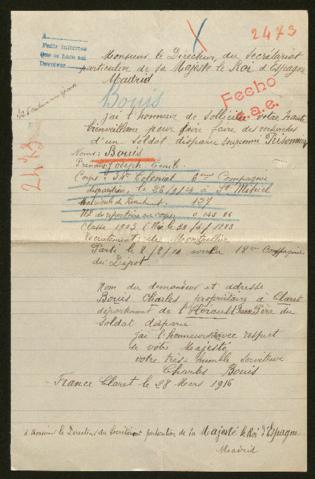 A
Pedir informes
Que se haga asi
Devolver
2473
Monsieur le Directeur du Secrétariat
particulier de sa Majesté le Roi d'Espagne
Madrid
Bouis
Fecho
a.e.
J'ai l'honneur de solliciter votre haute
bienveillance pour faire faire des recherches
d'un soldat disparu supposé Prisonnier
Nom: Bouis
Prénoms Joseph Emile
2473
Corps Colonial Compagnie
disparition, le à
Matricule de Recrutement: 137
Nº de répertoire au corps
Classe 1903
Recrutement de Montpellier
Parti le Compagnie
du Dépôt
Nom du demandeur et adresse
Bouis Charles propriétaire à Claret
département de l'Hérault Père du
Soldat disparu
J'ai l'honneur avec respect
de votre Majesté
votre très humble serviteur
Charles Bouis
France Claret le 28 Mars 1916
à Monsieur le Directeur du Secrétariat particulier de Sa Majesté le Roi d'Espagne
Madrid